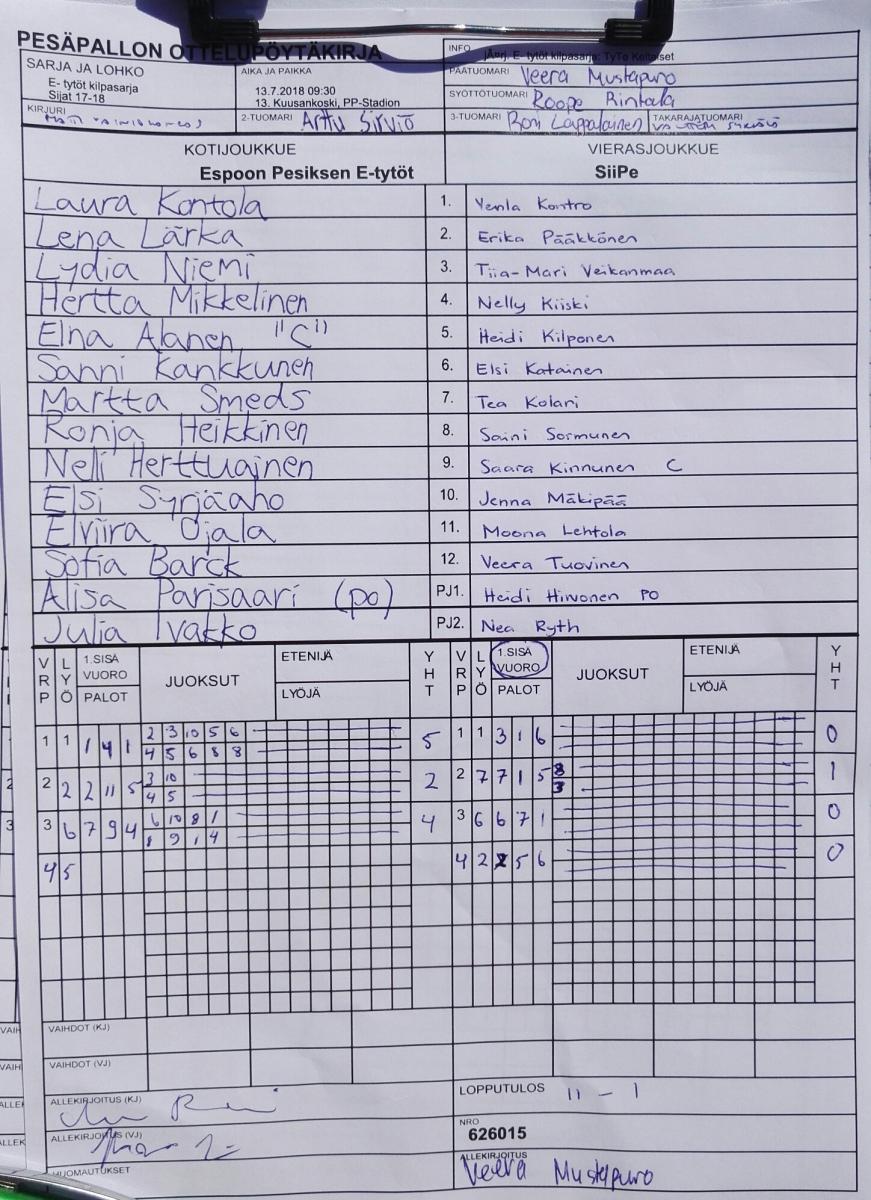 PESÄPALLON OTTELUPÖYTÄKIRJA
INFO
Järj. E- tytöt kilpasarja: TyTo Keltaiset
SARJA JA LOHKO
E- tytöt kilpasarja
Sijat 17-18
AIKA JA PAIKKA
13.7.2018 09:30
13. Kuusankoski, PP-Stadion
PÄÄTUOMARI Veera Mustapuro
SYÖTTÖTUOMARI Roope Rintala
KIRJURI
2-TUOMARI Arttu Sirviö
3-TUOMARI Roni Lappalainen
TAKARAJATUOMARI
KOTIJOUKKUE
Espoon Pesiksen E-tytöt
VIERASJOUKKUE
SiiPe
Laura Kontola 1. Venla Kontro
Lena Lärka 2. Erika Pääkkönen
Lydia Niemi 3. Tiia-Mari Veikanmaa
Hertta Mikkelinen 4. Nelly Kiiski
Elna Alanen "C" 5. Heidi Kilponen
Sanni Kankkunen 6. Elsi Katainen
Martta Smeds 7. Tea Kolari
Ronja Heikkinen 8. Saini Sormunen
Neli Herttuainen 9. Saara Kinnunen C
Elsi Syrjäaho 10. Jenna Mäkipää
Elviira Ojala 11. Moona Lehtola
Sofia Barck 12. Veera Tuovinen
Alisa Parisaari (po) PJ1. Heidi Hirvonen PO
Julia Ivakko PJ2. Nea Ryth
VRP LYÖ 1.SISÄ VUORO PALOT JUOKSUT ETENIJÄ LYÖJÄ YHT
VRP LYÖ 1.SISÄ VUORO PALOT JUOKSUT ETENIJÄ LYÖJÄ YHT
1 1 1 4 1 2 3 10 5 6 5 1 1 3 1 6 0
4 5 6 8 8
2 2 2 11 5 3 10 2 2 7 7 1 5 8 1
4 5 3
3 6 7 9 4 6 10 8 1 4 3 6 6 7 1 0
8 9 1 4
4 5 4 2 5 6 0
VAIHDOT (KJ)
VAIHDOT (VJ)
ALLEKIRJOITUS (KJ)
LOPPUTULOS 11 - 1
ALLEKIRJOITUS (VJ)
NRO
626015
HUOMAUTUKSET
ALLEKIRJOITUS
Veera Mustapuro